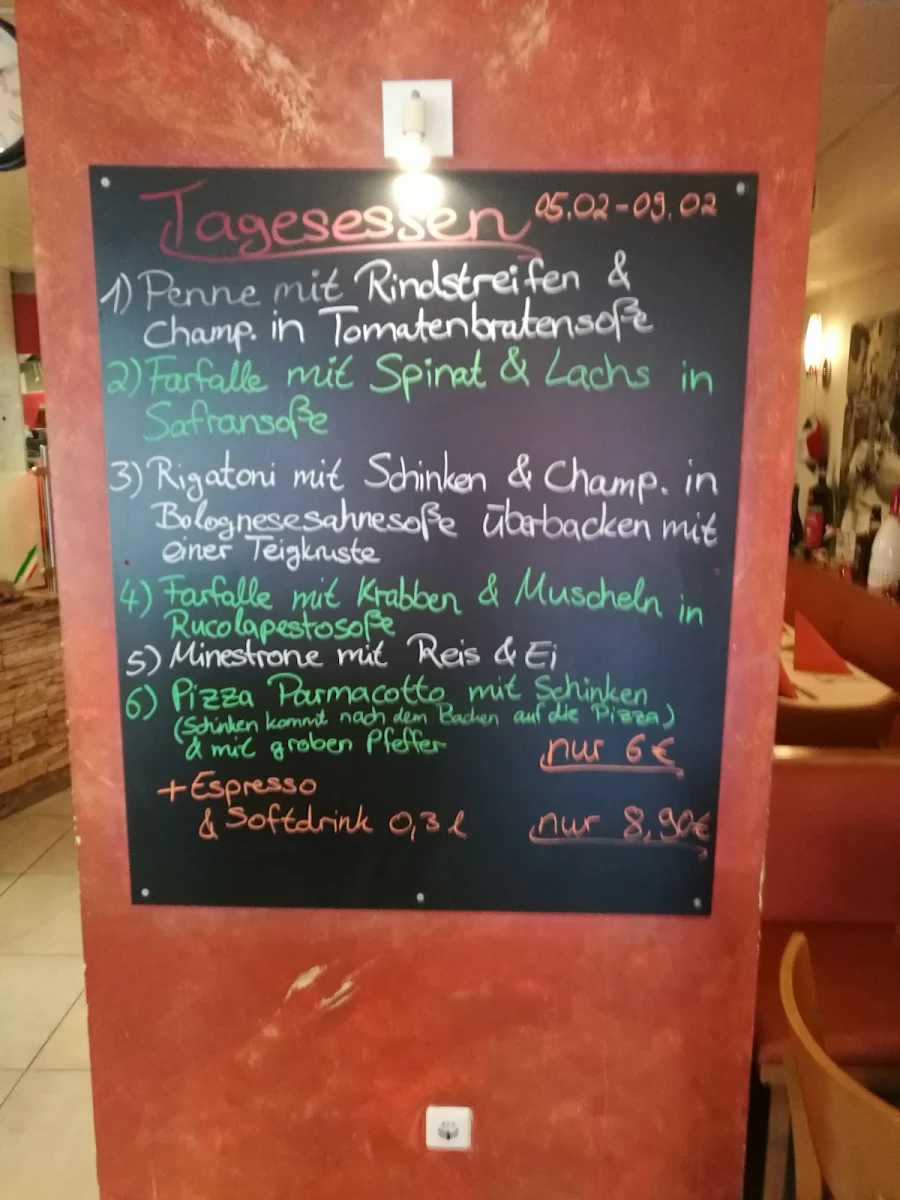 Tagesessen 05.02-09.02
1) Penne mit Rindstreifen &
Champ. in Tomatenbratensoße
2) Farfalle mit Spinat & Lachs in
Safransoße
3) Rigatoni mit Schinken & Champ. in
Bolognesesahnesoße überbacken mit
einer Teigkruste
4) Farfalle mit Krabben & Muscheln in
Rucolapestosoße
5) Minestrone mit Reis & Ei
6) Pizza Parmacotto mit Schinken
(Schinken kommt nach dem Backen auf die Pizza)
& mit groben Pfeffer nur 6€
+ Espresso
& Softdrink 0,3l nur 8,90€